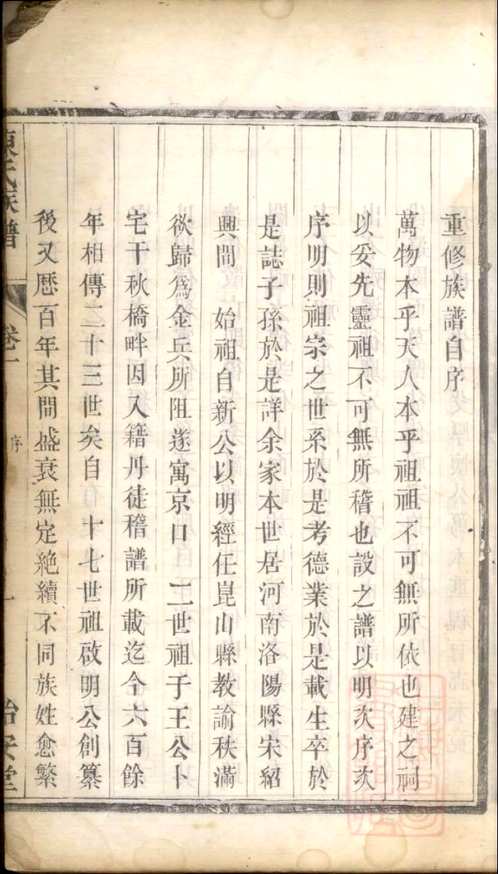 重修族譜自序
萬物本乎天人本乎祖祖不可無所依也建之祠
以妥先靈祖不可無所稽也設之譜以明次序次
序明則祖宗之世系於是考德業於是載生卒於
是誌子孫於是詳余家本世居河南洛陽縣宋紹
興間 始祖自新公以明經任崑山縣教諭秩滿
欲歸爲金兵所阻遂寓京口 二世祖于王公卜
宅干秋橋畔因入籍丹徒稽譜所載迄今六百餘
年相傳二十三世矣自 十七世祖啟明公創纂
後又歷百年其間盛衰無定絶續不同族姓愈繁
陳氏族譜 卷一 序 一